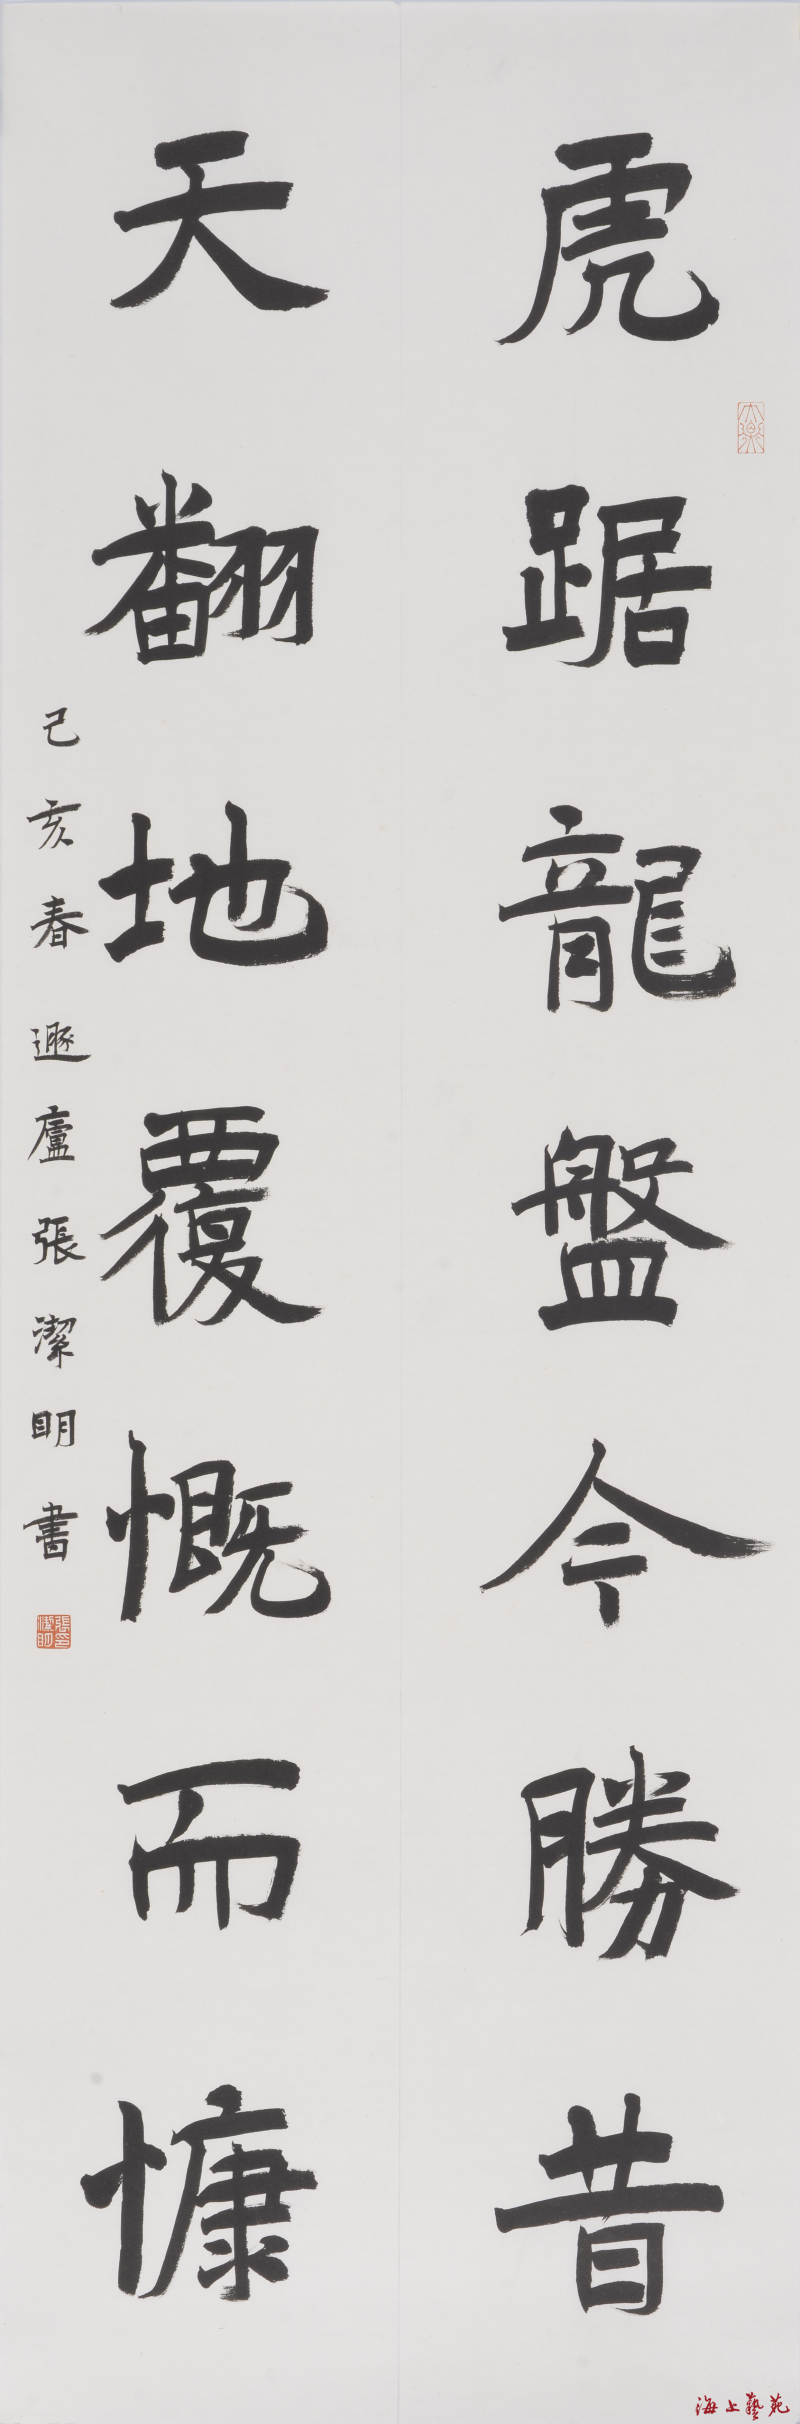 虎踞龍盤今勝昔
天翻地覆慨而慷
己亥春遯廬張潔明書
張潔明印
海上藝苑